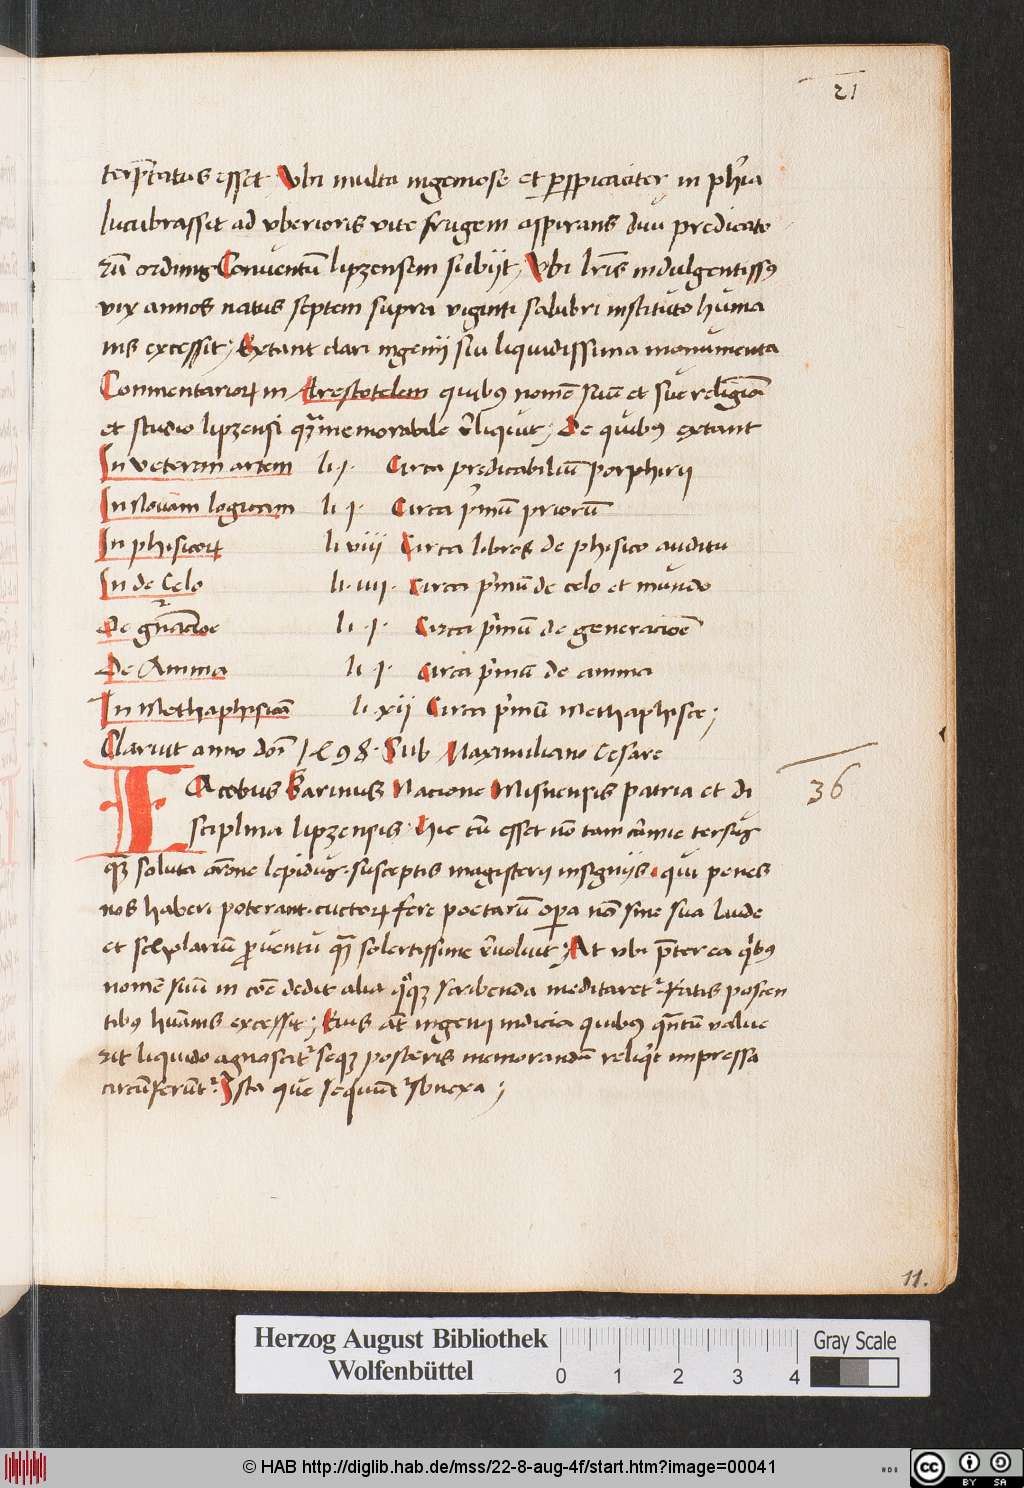 21
terp̄tatus esset Vbi multa ingeniose et ꝑspicaciter in ph'ia
lucubrassit ad vberioris vite frugem aspirans diui predicato
rū ordinis Conuentū lipzensem subijt, Vbi lr̄is indulgentissꝰ
vix annos natus septem supra viginti salubri instituto huma
nis excessit; Extant clari ingenij sui liquidissima monumenta
Commentarioꝝ in Arestotelem quibꝰ nomē suū et sue religiōi
et studio lipzensi memorabile r̄liquit; De quibꝰ extant
In veterem artem li. j. Circa predicabiliū porphirij
In Nouam logicam li. j. Circa p'mū priorū
In phisicoꝝ li viij Circa libros de phisico auditu
In de Celo li. iiij. Circa p'mū de celo et mundo
De gn̄acioe li. j. Circa p'mū de generacioē
De Anima li j. Circa p'mū de anima
In Methaphisicā li xij Circa p'mū Methaphisce;
Claruit anno dōi 1498. Sub Maximiliano Cesare
IAcobus Barinus Nacione Misnensis patria et di
sciplina lipzensis. Hic cū esset nō tam c̄mie tersus
qꝫ̄ soluta orōne lepidus. susceptis magisterij insignijs. qui penes
nos haberi poterant. cuctoꝝ fere poetarū oꝑa nō sine sua laude
et scholariū ꝓuentu qꝫ̄ solertissime r̄uoluit; At vbi p̄terea q'bꝰ
nomē suū in cōe dedit alia q°qꝫ scribenda meditaret' Fatis poscen
tibus huānis excessit; Eius aūt ingenij indicia quibus qn̄tū value
rit liquido agnoscit' seqꝫ posteris memorandū reliq't impressa
circūferūt' Ista que sequūt' sbnexa;
36
11.
Herzog August Bibliothek
Wolfenbüttel
0 1 2 3 4
Gray Scale
© HAB http://diglib.hab.de/mss/22-8-aug-4f/start.htm?image=00041
HAB
cc BY SA